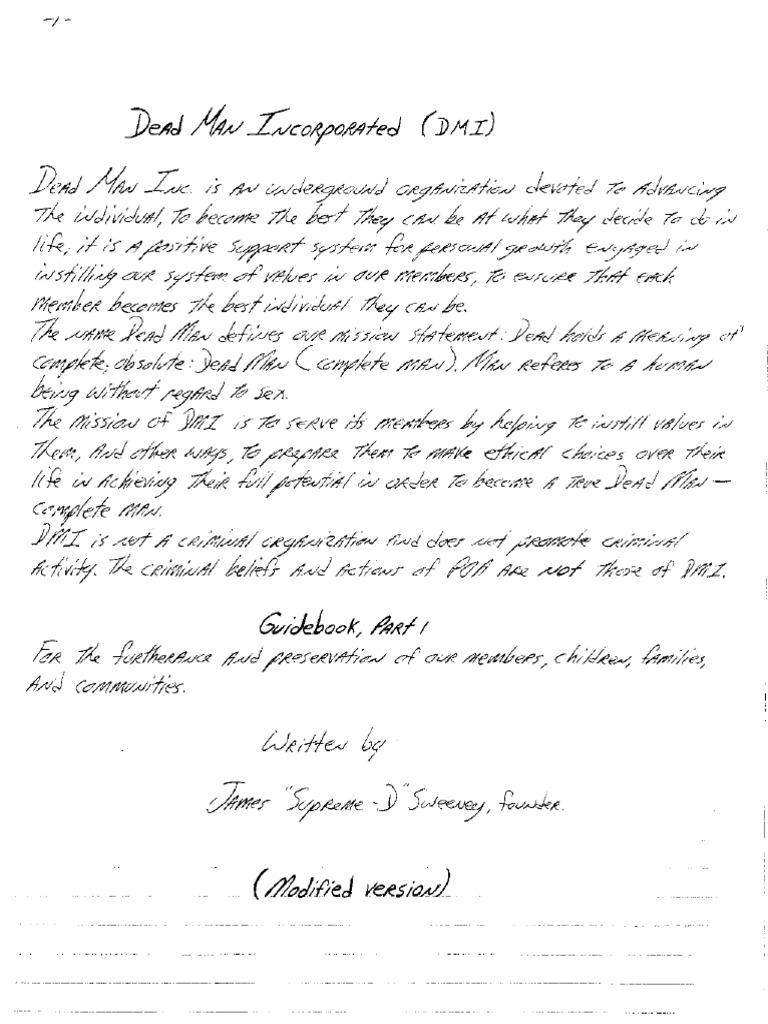 -1-
Dead Man Incorporated (DMI)
Dead Man Inc. is an underground organization devoted to advancing
the individual, to become the best they can be at what they decide to do in
life; it is a positive support system for personal growth engaged in
instilling our system of values in our members, to ensure that each
member becomes the best individual they can be.
The name Dead Man defines our mission statement: Dead holds a meaning of
complete; absolute: Dead Man (complete man). Man referes to a human
being without regard to sex.
The mission of DMI is to serve its members by helping to instill values in
them, and other ways, to prepare them to make ethical choices over their
life in achieving their full potential in order to become a true Dead Man —
complete man.
DMI is not a criminal organization and does not promote criminal
activity. The criminal beliefs and actions of POA are not those of DMI.
Guidebook, Part 1
For the furtherance and preservation of our members, children, families,
and communities.
Written by
James "Supreme-D" Sweeney, founder.
(Modified version)